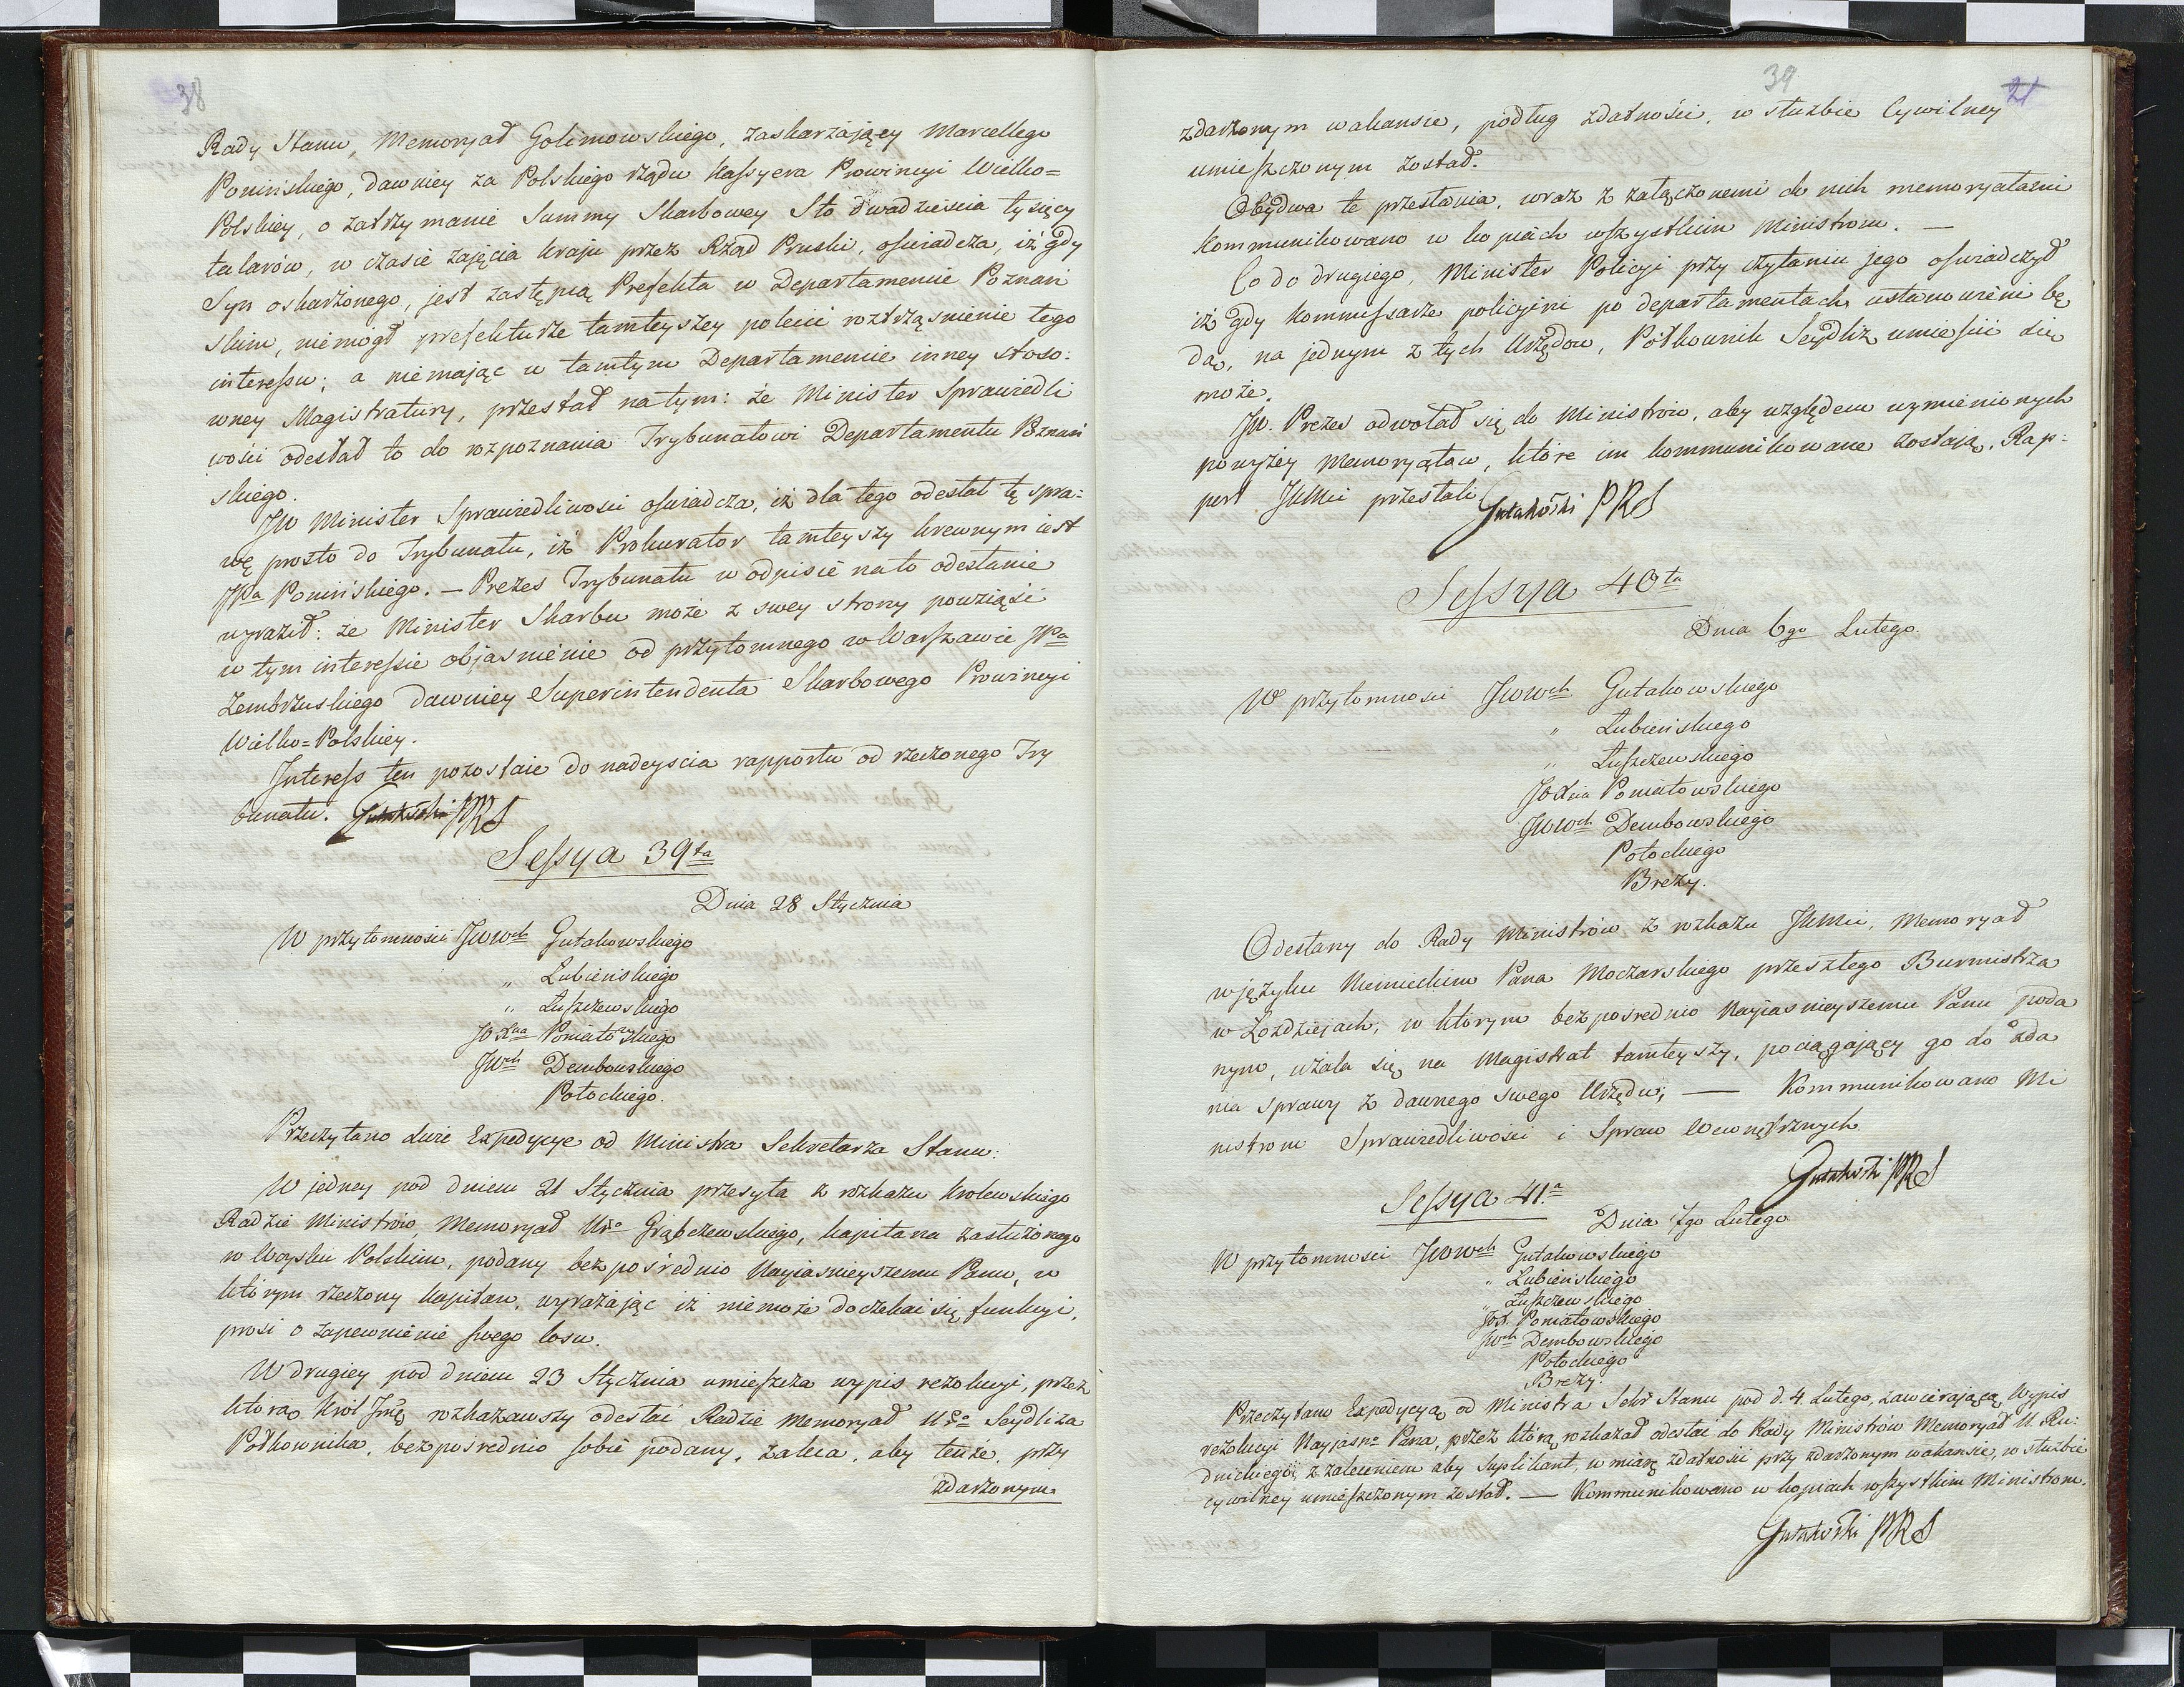 38
Rady Stanu, Memoryał Golimowskiego, zaskarżający Marcellego
Ponińskiego, dawniey za Polskiego rządu Kassyera Prowincyi Wielko=
Polskiey, o zatrzymanie Summy Skarbowey Sto dwadzieścia tysięcy
talarów, w czasie zajęcia kraju przez Rząd Pruski, oświadcza, iż gdy
Syn oskarżonego, jest zastępcą Prefekta w Departamencie Poznań
skim, niemógł prefekturze tamteyszey polecić roztrząśnienie tego
interessu; a niemając w tamtym Departamencie inney stoso-
wney Magistratury, przestał na tym: że Minister Sprawiedli
wości odesłał to do rozpoznania Trybunałowi Departamentu Poznań
skiego.
JW Minister Sprawiedliwości oświadcza, iż dla tego odesłał tę spra=
wę prosto do Trybunału, iż Prokurator tamteyszy krewnym iest
JPa Ponińskiego. — Prezes Trybunału w odpisie na to odesłanie
wyraził: że Minister Skarbu może z swey strony powziąść
w tym interessie objaśnienie od przytomnego w Warszawie JPa
Zembrzuskiego dawniey Superintendenta Skarbowego Prowincyi
Wielko=Polskiey.
Interess ten pozostaie do nadeyścia rapportu od rzeczonego Try
bunału. Gutakowski PRS
Sessya 39ta
Dnia 28 Stycznia
W przytomności JWWch Gutakowskiego
„ Łubieńskiego
„ Łuszczewskiego
JOXcia Poniatowskiego
JWch Dembowskiego
Potockiego.
Przeczytano dwie Expedycye od Ministra Sekretarza Stanu:
W jedney pod dniem 21 Stycznia przesyła z rozkazu Krolewskiego
Radzie Ministrów, Memoryał Ur° Grąbczewskiego, kapitana zasłużonego
w Woysku Polskim, podany bezpośrednio Nayiaśnieyszemu Panu, w
którym rzeczony kapitan, wyrażając iż niemoże doczekać się funkcyi,
prosi o zapewnienie swego losu.
W drugiey pod dniem 23 Stycznia umieszcza wypis rezolucyi, przez
którą Król Jmć rozkazawszy odesłać Radzie Memoryał Ur° Seydlitza
Półkownika, bezpośrednio sobie podany, zaleca, aby tenże, przy
zdarzonym
39
21
zdarzonym wakansie, podług zdatności, w służbie Cywilney
umieszczonym został.
Obydwa te przesłania, wraz z załączonemi do nich memoryałami
kommunikowano w kopiach wszystkim Ministrom. —
Co do drugiego, Minister Policyi przy czytaniu jego oświadczył
iż gdy kommissarze policyini po departamentach ustanowieni bę
dą, na jednym z tych Urzędów, Półkownik Seydlitz umieścić się
może.
JW. Prezes odwołał się do Ministrów, aby względem wymienionych
powyżey Memoryałów, które im kommunikowane zostają, Rap-
port JKMci przesłali. Gutakowski PRS
Sessya 40ta
Dnia 6go Lutego.
W przytomności JWWch Gutakowskiego
„ Łubieńskiego
„ Łuszczewskiego
JOXcia Poniatowskiego
JWWch Dembowskiego
Potockiego
Brezy.
Odesłany do Rady Ministrów z rozkazu JKMci, Memoryał
w języku Niemieckim Pana Moczarskiego przeszłego Burmistrza
w Łozdziejach; w którym bezpośrednio Nayiaśnieyszemu Panu poda
nym, użala się na Magistrat tamteyszy, pociągający go do zda
nia sprawy z dawnego swego Urzędu; — Kommunikowano Mi
nistrom Sprawiedliwości i Spraw Wewnętrznych.
Gutakowski PRS
Sessya 41a
Dnia 7go Lutego
W przytomności JWWch Gutakowskiego
„ Łubieńskiego
„ Łuszczewskiego
JOX. Poniatowskiego
JWch Dembowskiego
Potockiego
Brezy.
Przeczytano Expedycyą od Ministra Sekr Stanu pod d. 4. Lutego, zawierającą Wypis
rezolucyi Nayjaśn° Pana, przez którą rozkazał odesłać do Rady Ministrów Memoryał U. Ru-
dnickiego, z zaleceniem aby Suplikant, w miarę zdatności przy zdarzonym wakansie, w służbie
cywilney umieszczonym został. — Kommunikowano w kopiach wszystkim Ministrom.
Gutakowski PRS